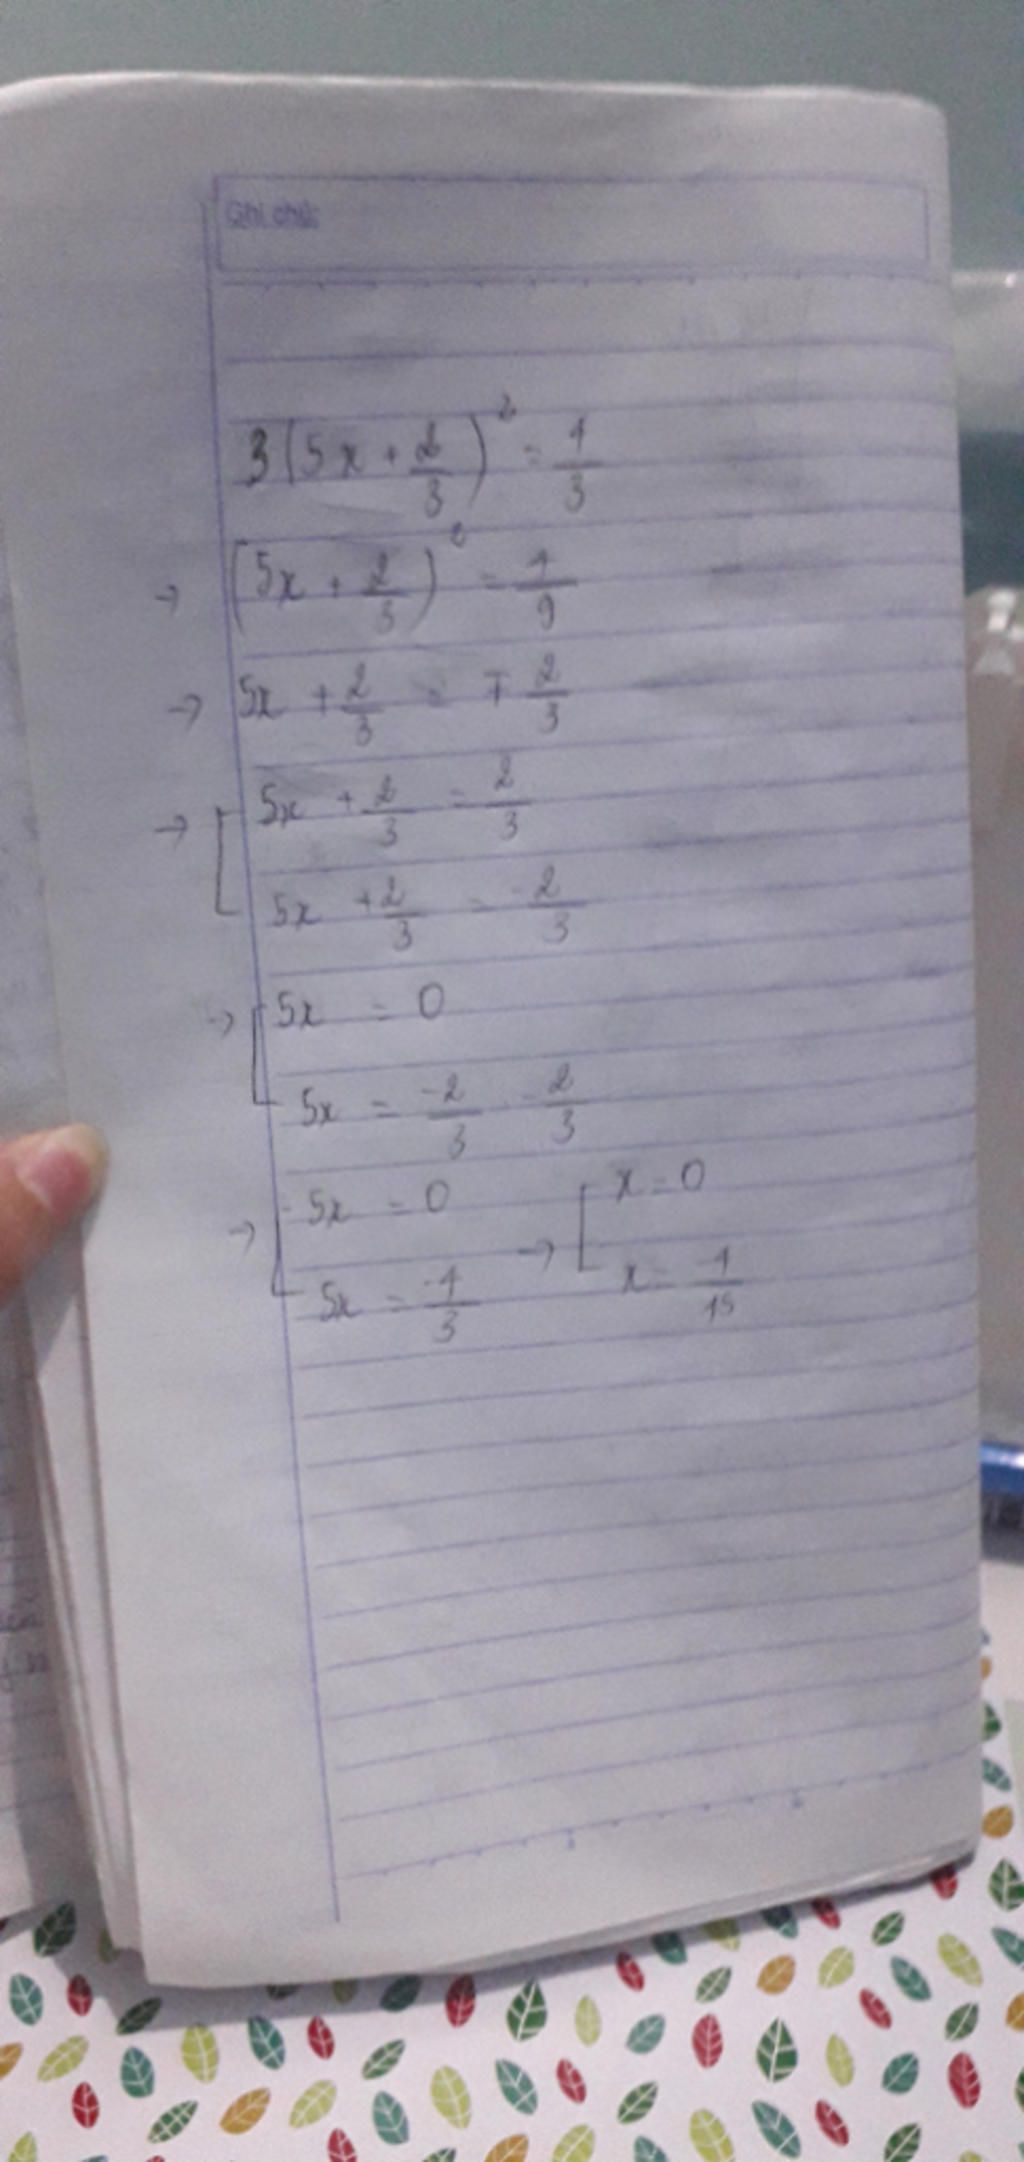 Ghi chú:
3(5x + 2/3)² = 4/3
→ (5x + 2/3)² = 4/9
→ 5x + 2/3 = ∓ 2/3
→ [ 5x + 2/3 = 2/3
5x + 2/3 = -2/3
→ [ 5x = 0
5x = -2/3 - 2/3
→ [ 5x = 0 → [ x = 0
5x = -4/3 x = -4/15